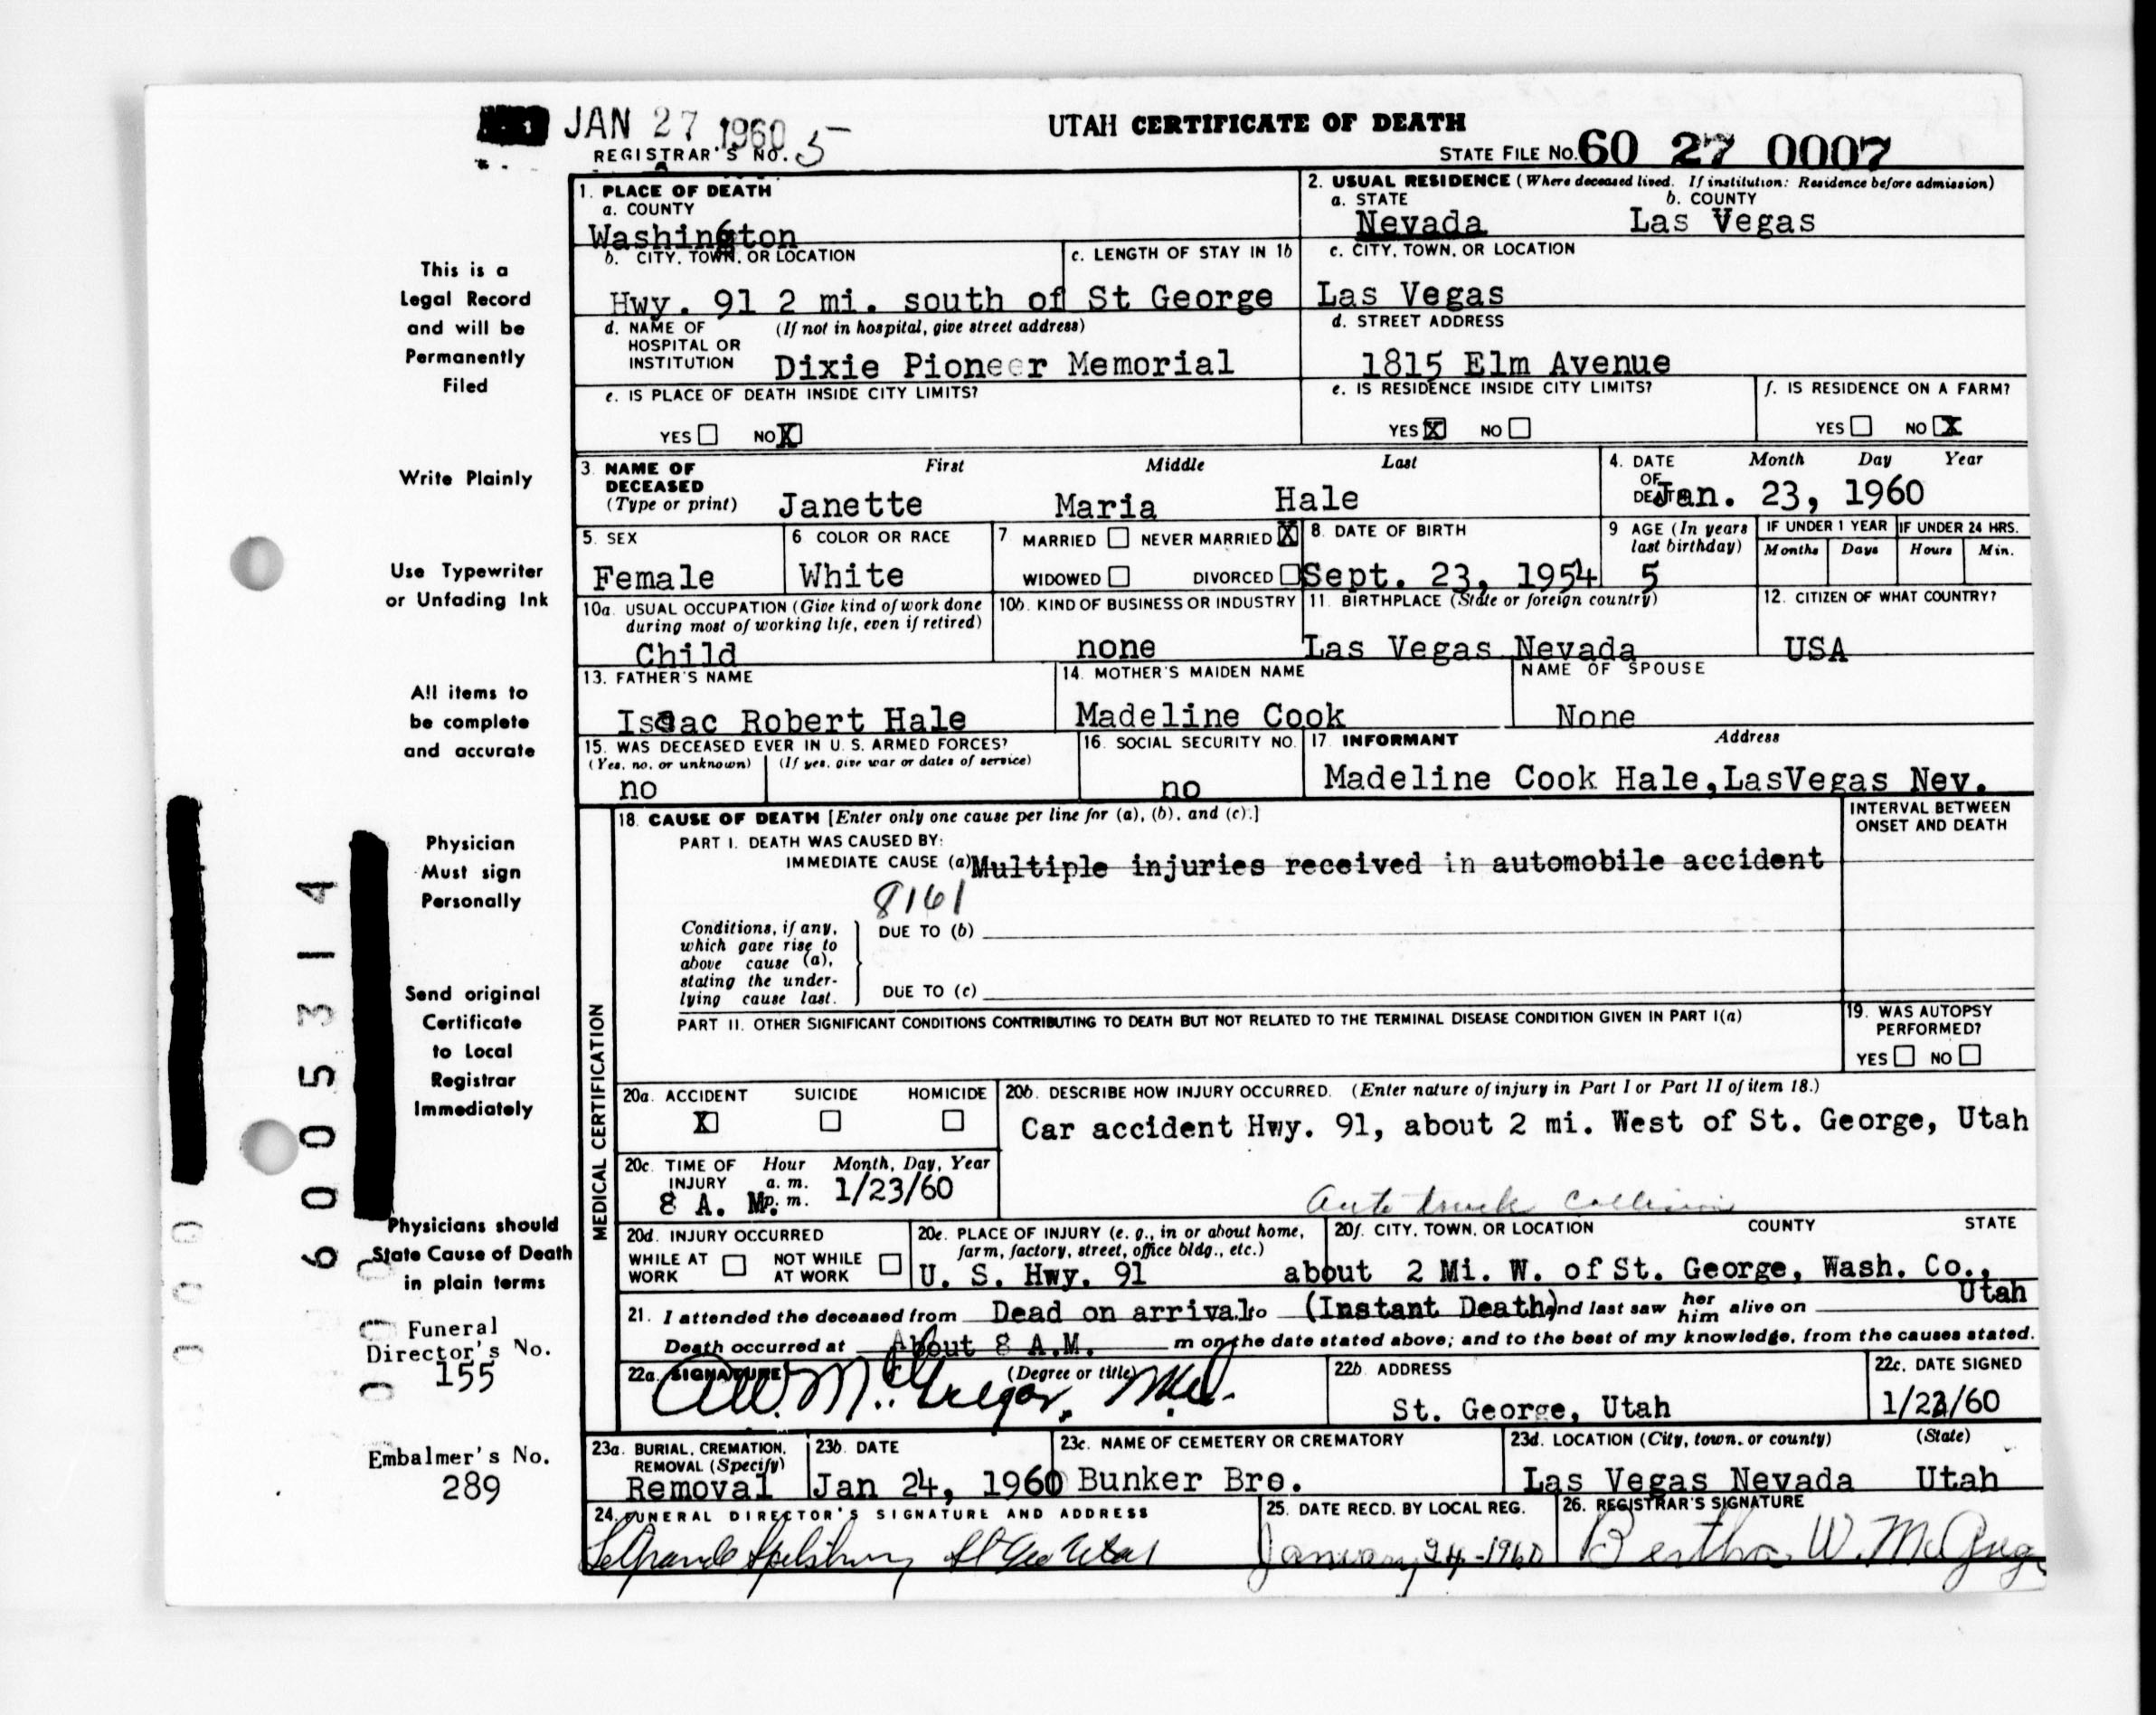 JAN 27 1960
UTAH CERTIFICATE OF DEATH
REGISTRAR'S NO. 5
STATE FILE NO. 60 27 0007
1. PLACE OF DEATH
a. COUNTY
Washington
2. USUAL RESIDENCE (Where deceased lived. If institution: Residence before admission)
a. STATE b. COUNTY
Nevada Las Vegas
b. CITY, TOWN, OR LOCATION c. LENGTH OF STAY IN 1b
Hwy. 91 2 mi. south of St George
c. CITY, TOWN, OR LOCATION
Las Vegas
d. NAME OF HOSPITAL OR INSTITUTION (If not in hospital, give street address)
Dixie Pioneer Memorial
d. STREET ADDRESS
1815 Elm Avenue
e. IS PLACE OF DEATH INSIDE CITY LIMITS?
YES NO X
e. IS RESIDENCE INSIDE CITY LIMITS?
YES X NO
f. IS RESIDENCE ON A FARM?
YES NO X
3. NAME OF DECEASED (Type or print) First Middle Last
Janette Maria Hale
4. DATE OF DEATH Month Day Year
Jan. 23, 1960
5. SEX
Female
6 COLOR OR RACE
White
7 MARRIED NEVER MARRIED X
WIDOWED DIVORCED
8. DATE OF BIRTH
Sept. 23, 1954
9 AGE (In years last birthday)
5
IF UNDER 1 YEAR IF UNDER 24 HRS.
Months Days Hours Min.
10a. USUAL OCCUPATION (Give kind of work done during most of working life, even if retired)
Child
10b. KIND OF BUSINESS OR INDUSTRY
none
11. BIRTHPLACE (State or foreign country)
Las Vegas Nevada
12. CITIZEN OF WHAT COUNTRY?
USA
13. FATHER'S NAME
Isaac Robert Hale
14. MOTHER'S MAIDEN NAME
Madeline Cook
NAME OF SPOUSE
None
15. WAS DECEASED EVER IN U. S. ARMED FORCES?
(Yes, no, or unknown) (If yes, give war or dates of service)
no
16. SOCIAL SECURITY NO.
no
17. INFORMANT Address
Madeline Cook Hale, LasVegas Nev.
18. CAUSE OF DEATH [Enter only one cause per line for (a), (b), and (c).]
INTERVAL BETWEEN ONSET AND DEATH
PART I. DEATH WAS CAUSED BY:
IMMEDIATE CAUSE (a) Multiple injuries received in automobile accident
8161
Conditions, if any, which gave rise to above cause (a), stating the underlying cause last.
DUE TO (b)
DUE TO (c)
PART II. OTHER SIGNIFICANT CONDITIONS CONTRIBUTING TO DEATH BUT NOT RELATED TO THE TERMINAL DISEASE CONDITION GIVEN IN PART I(a)
19. WAS AUTOPSY PERFORMED?
YES NO
MEDICAL CERTIFICATION
20a. ACCIDENT SUICIDE HOMICIDE
X
20b. DESCRIBE HOW INJURY OCCURRED. (Enter nature of injury in Part I or Part II of item 18.)
Car accident Hwy. 91, about 2 mi. West of St. George, Utah
Auto truck collision
20c. TIME OF INJURY Hour a. m. p. m. Month, Day, Year
8 A. M. 1/23/60
20d. INJURY OCCURRED
WHILE AT WORK NOT WHILE AT WORK
20e. PLACE OF INJURY (e. g., in or about home, farm, factory, street, office bldg., etc.)
U. S. Hwy. 91
20f. CITY, TOWN, OR LOCATION COUNTY STATE
about 2 Mi. W. of St. George, Wash. Co., Utah
21. I attended the deceased from Dead on arrival to (Instant Death) and last saw her him alive on
Death occurred at About 8 A.M. m on the date stated above; and to the best of my knowledge, from the causes stated.
22a. SIGNATURE (Degree or title)
A.W. McGregor, M.D.
22b. ADDRESS
St. George, Utah
22c. DATE SIGNED
1/23/60
23a. BURIAL, CREMATION, REMOVAL (Specify)
Removal
23b. DATE
Jan 24, 1960
23c. NAME OF CEMETERY OR CREMATORY
Bunker Bro.
23d. LOCATION (City, town, or county) (State)
Las Vegas Nevada Utah
24. FUNERAL DIRECTOR'S SIGNATURE AND ADDRESS
St Geo Utah
25. DATE RECD. BY LOCAL REG.
January 24-1960
26. REGISTRAR'S SIGNATURE
Bertha W.
This is a
Legal Record
and will be
Permanently
Filed
Write Plainly
Use Typewriter
or Unfading Ink
All items to
be complete
and accurate
Physician
Must sign
Personally
Send original
Certificate
to Local
Registrar
Immediately
Physicians should
State Cause of Death
in plain terms
Funeral
Director's No.
155
Embalmer's No.
289
6005314